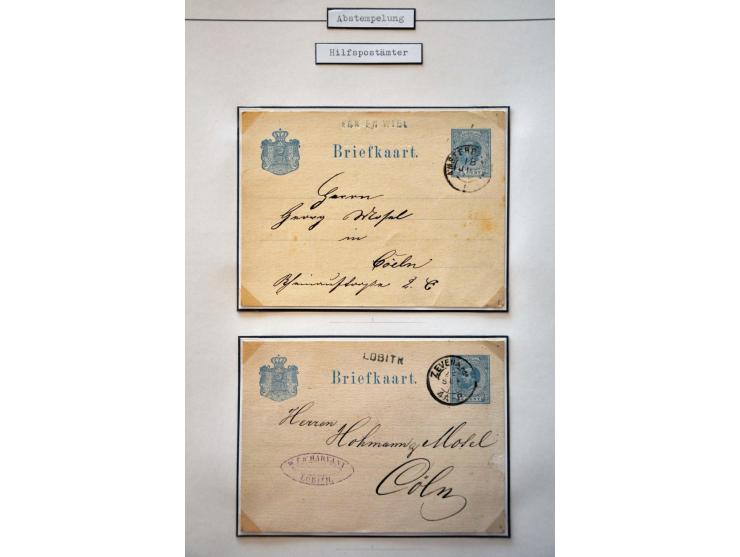 Abstempelung
Hilfspostämter
Briefkaart.
Herrn
Mosel
in
Cöeln
2.
LOBITH
Briefkaart.
ZEVENAAR
Herren
Hohmann & Mosel
Cöln
LOBITH.